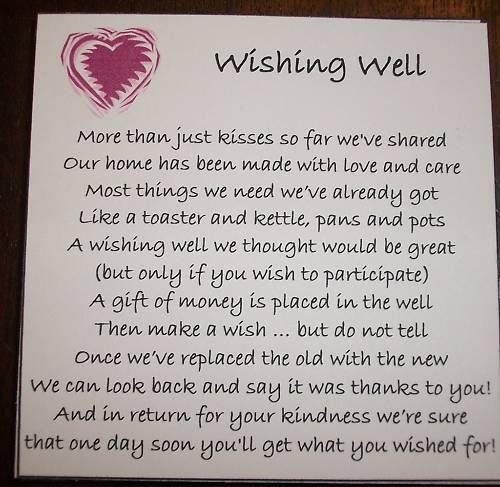 Wishing Well
More than just kisses so far we've shared
Our home has been made with love and care
Most things we need we've already got
Like a toaster and kettle, pans and pots
A wishing well we thought would be great
(but only if you wish to participate)
A gift of money is placed in the well
Then make a wish ... but do not tell
Once we've replaced the old with the new
We can look back and say it was thanks to you!
And in return for your kindness we're sure
that one day soon you'll get what you wished for!